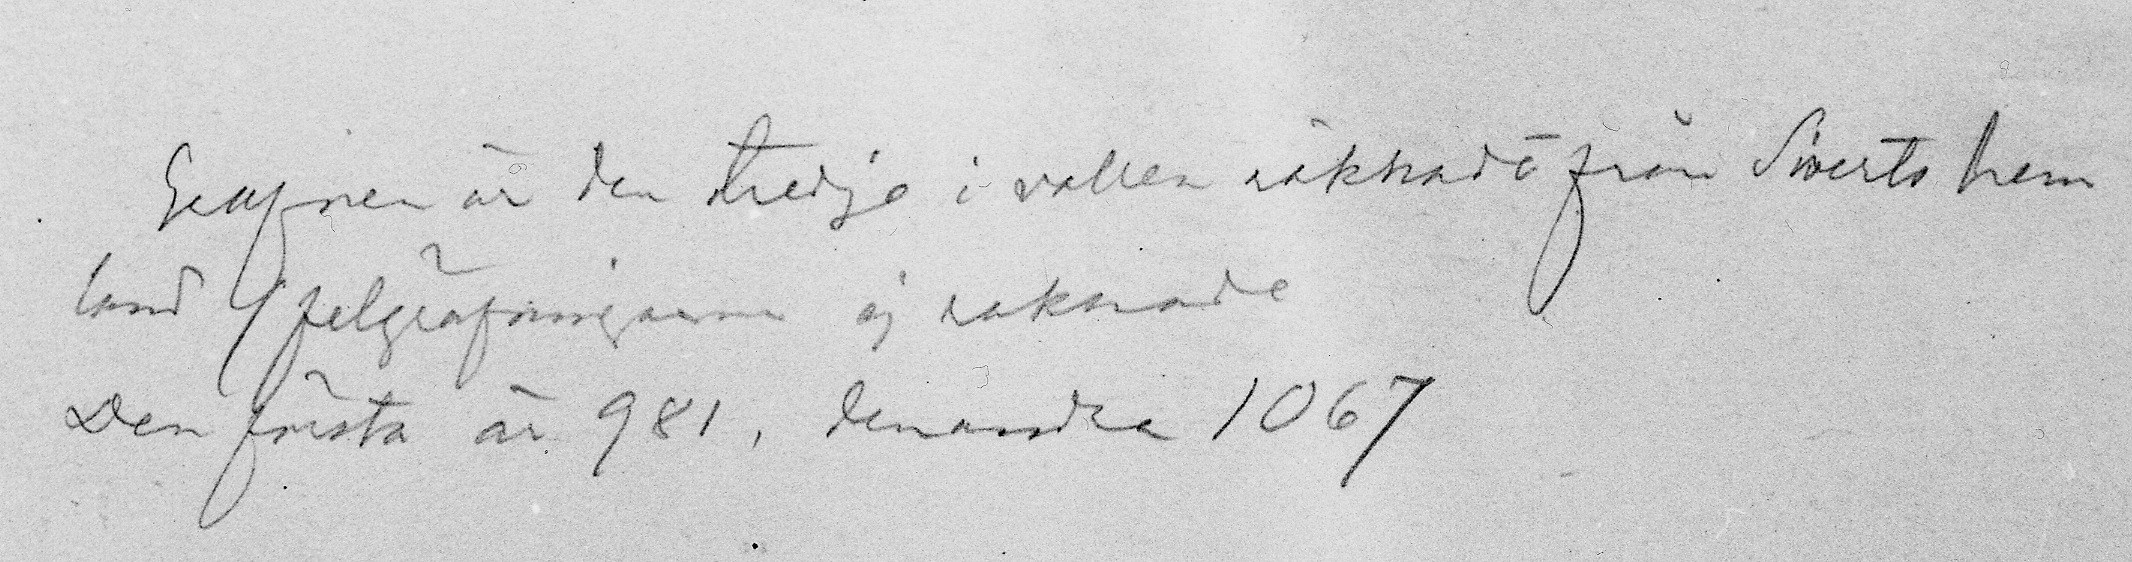 Grafven är den tredje i vallen räknadt från Siverts hem
land (felgräfningarna ej räknade
Den första är 981, den andra 1067